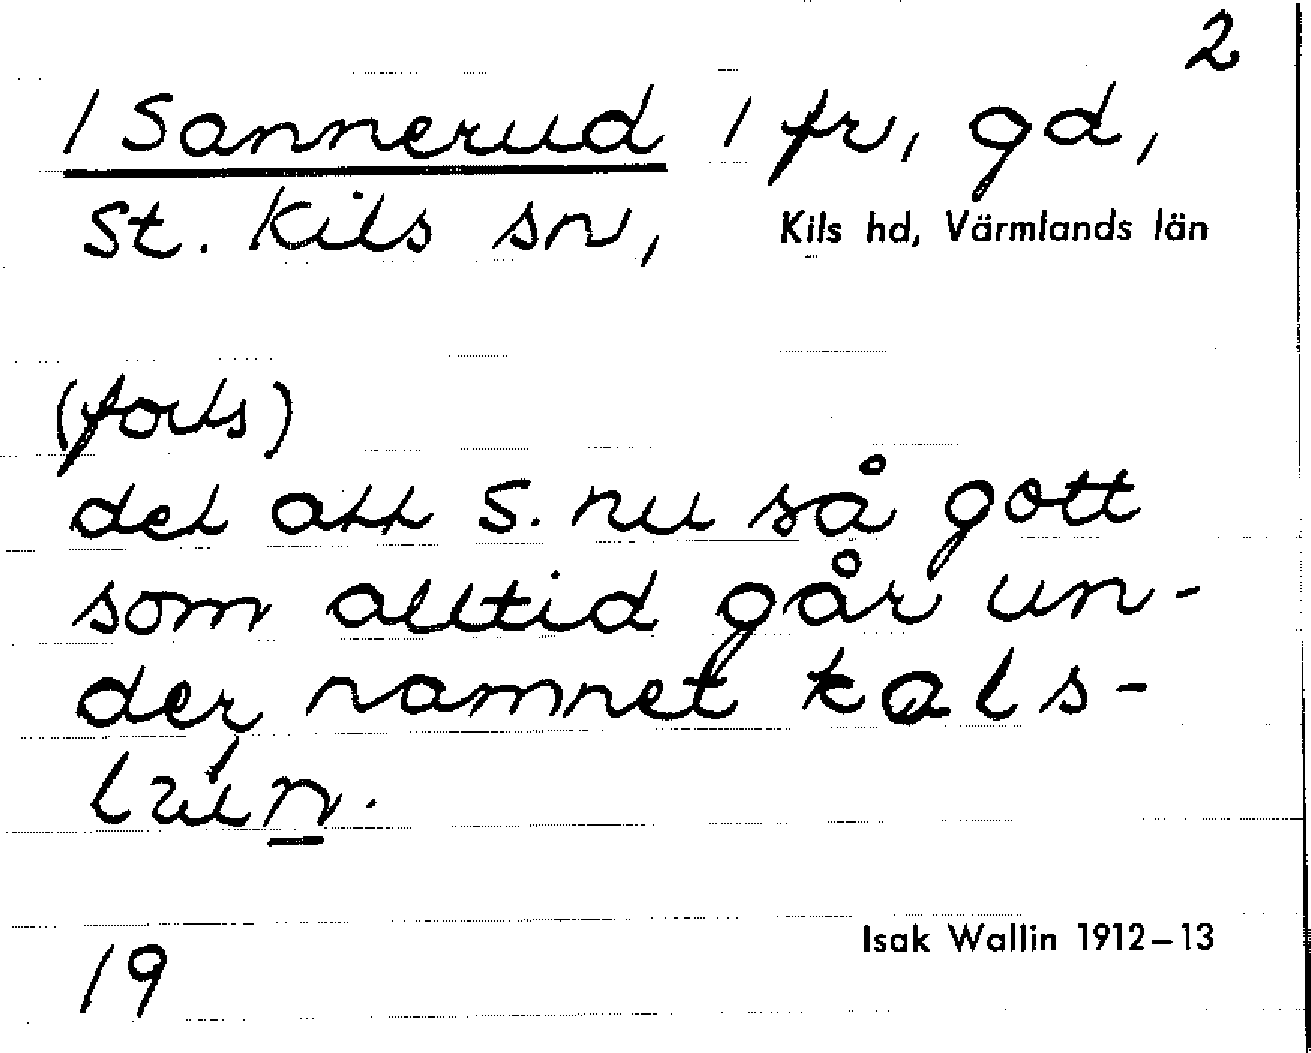 2
1 Sannerud 1 fr, gd,
St. Kils sn,
Kils hd, Värmlands län
(forts)
det att S. nu så gott
som alltid går un-
der namnet
19
Isak Wallin 1912–13